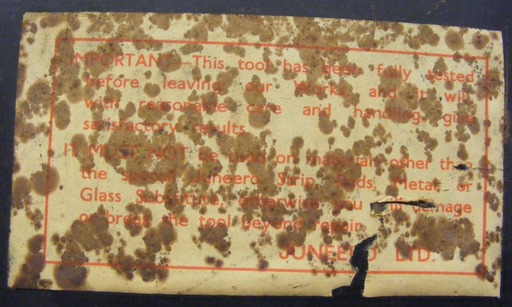 IMPORTANT—This tool has been fully tested
before leaving our Works and it will
with reasonable care and handling give
satisfactory results.
IT MUST NOT be used on materials other than
the special Juneero Strip, Rods, Metal or
Glass Substitute, otherwise you will damage
or break the tool beyond repair.
JUNEERO LTD.